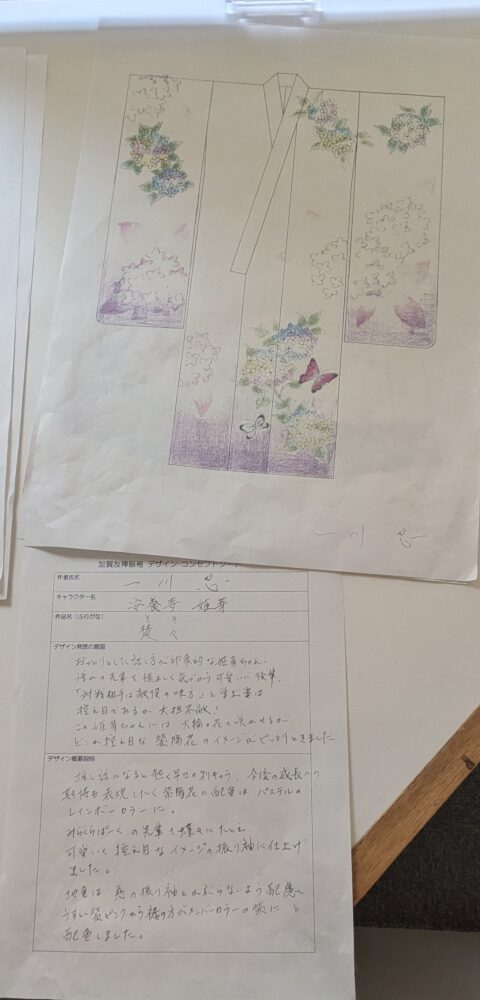 一川 忍
加賀友禅振袖 デザイン コンセプトシート
作者氏名
一川 忍
キャラクター名
安養寺 姫芽
作品名(ふりがな)
そ そ
楚々
デザイン発想の意図
おっとりとした話し方が印象的な姫芽ちゃん。
憧れの先輩を
「対戦相手は最後の味方」と
控え目であるが 大胆不敵!
この姫芽ちゃんには 大輪の花を咲かせるが
どこか控え目な 紫陽花のイメージがピッタリときました
デザイン概要説明
推し話になると 早口の別キャラ、今後の成長への
期待を表現したく紫陽花の配色は パステルの
レインボーカラーに。
みらくらぱーく の先輩を蝶々にたとえ
可愛いく 控え目なイメージの振り袖に仕上げ
ました。
地色は 慈の振り袖とかぶらないよう配慮し
うすい紫ピンクから裾の方がメンバーカラーの紫に と
配色しました。